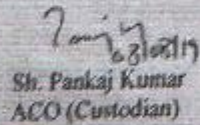 Sh. Pankaj Kumar
ACO (Custodian)